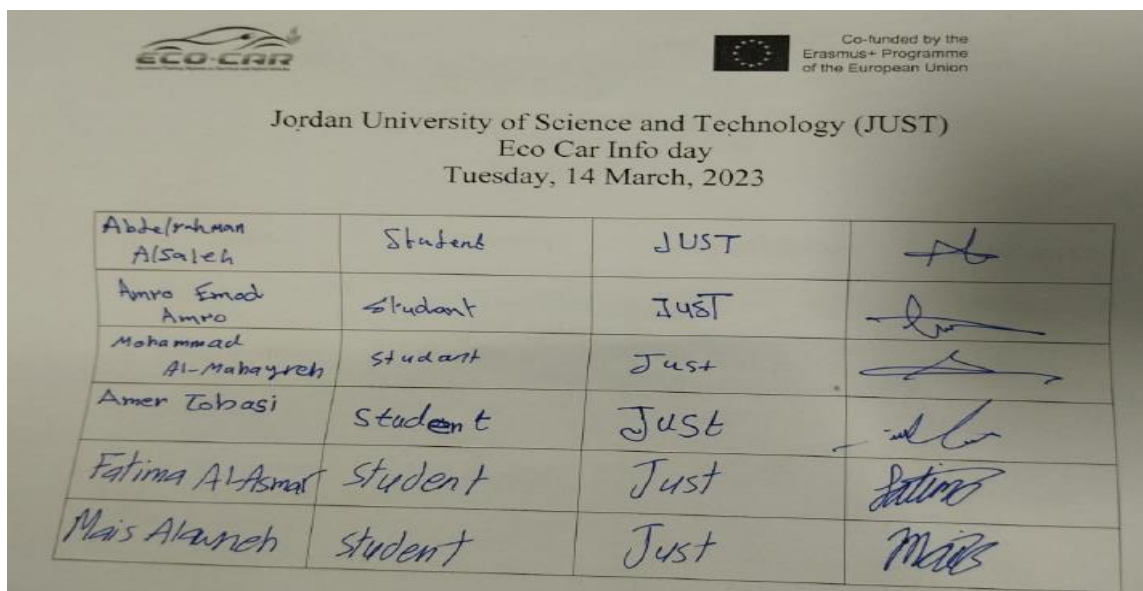 ECO-CAR
Co-funded by the
Erasmus+ Programme
of the European Union
Jordan University of Science and Technology (JUST)
Eco Car Info day
Tuesday, 14 March, 2023
Abdelrahman
Alsaleh
Student
JUST
Amro Emad
Amro
Studant
JUST
Mohammad
Al-Mahayreh
Studant
Just
Amer Tobasi
Student
Just
Fatima Al-Asmar
Student
Just
Fatima
Mais Alawneh
Student
Just
Mais